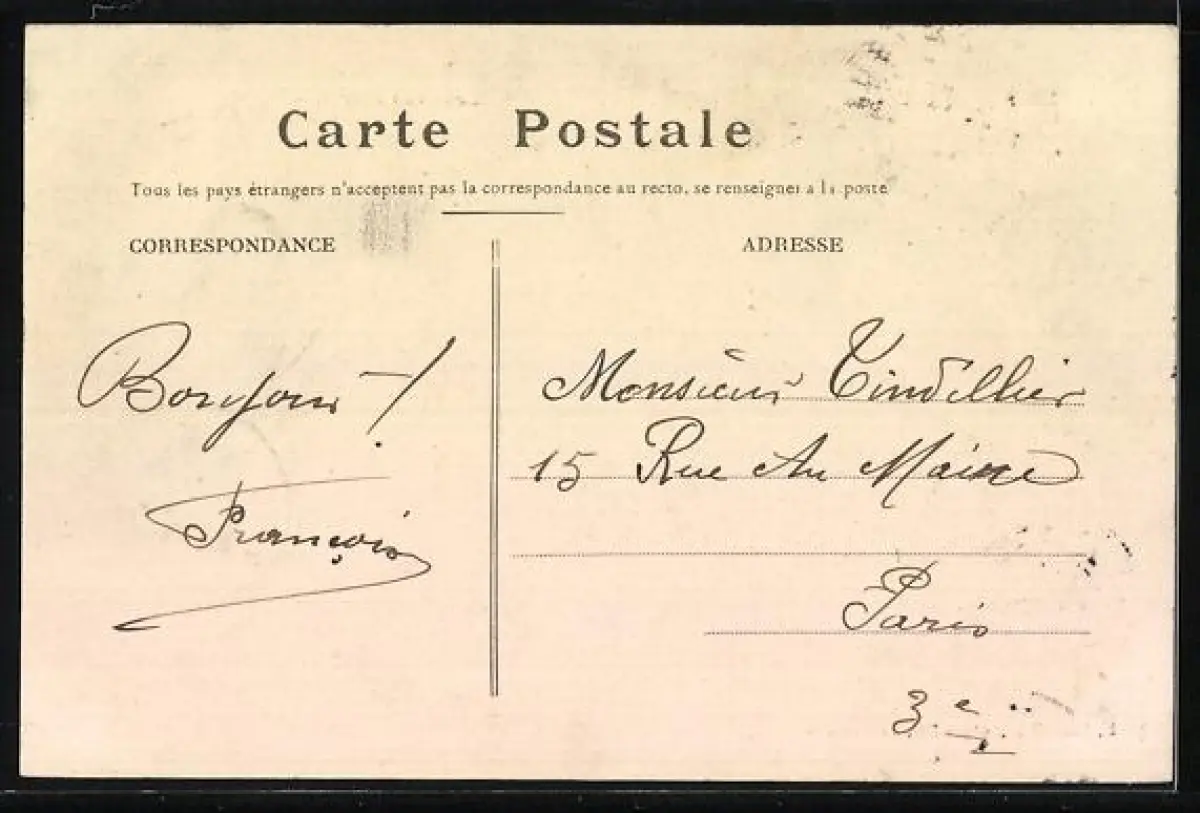 Carte Postale
Tous les pays étrangers n'acceptent pas la correspondance au recto, se renseigner à la poste
CORRESPONDANCE
Bonjour !
François
ADRESSE
Monsieur Tindillier
15 Rue Au Maire
Paris
3.e